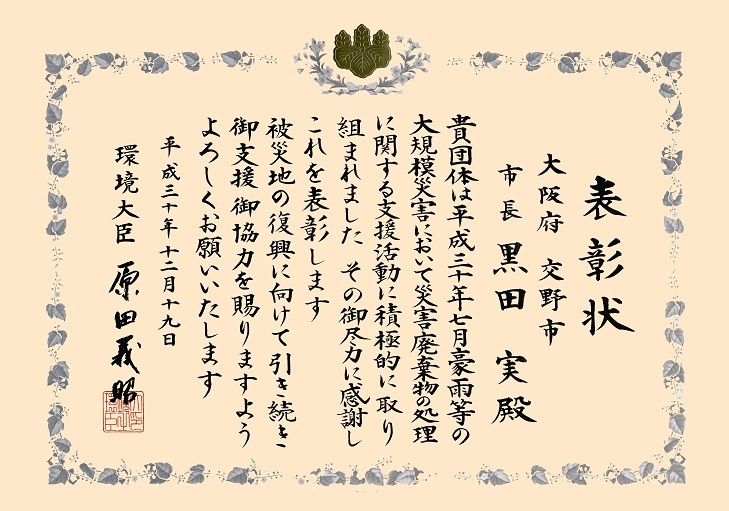 表彰状
大阪府 交野市
市長 黒田 実 殿
貴団体は平成三十年七月豪雨等の
大規模災害において災害廃棄物の処理
に関する支援活動に積極的に取り
組まれました その御尽力に感謝し
これを表彰します
被災地の復興に向けて引き続き
御支援御協力を賜りますよう
よろしくお願いいたします
平成三十年十二月十九日
環境大臣 原田義昭